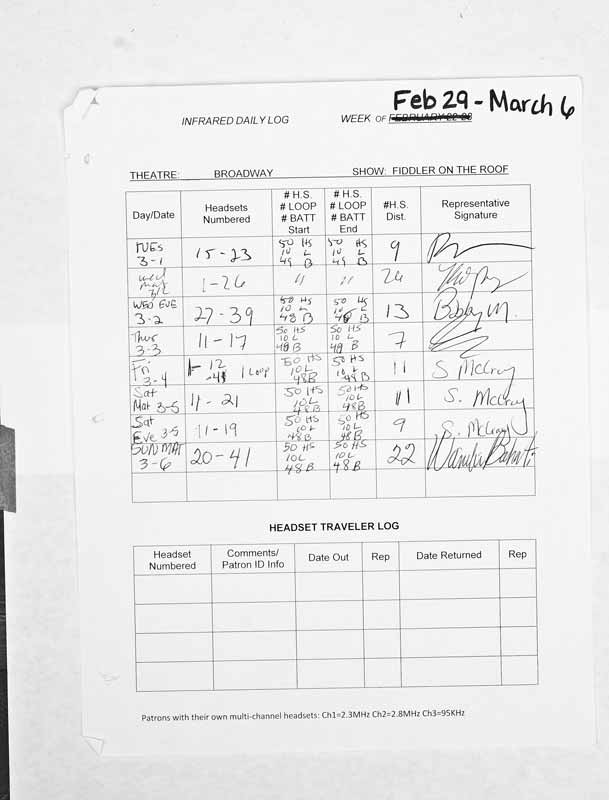 Feb 29 - March 6
INFRARED DAILY LOG WEEK OF FEBRUARY 22-28
THEATRE: BROADWAY SHOW: FIDDLER ON THE ROOF
Day/Date
Headsets
Numbered
# H.S.
# LOOP
# BATT
Start
# H.S.
# LOOP
# BATT
End
#H.S.
Dist.
Representative
Signature
TUES
3-1
15-23
50 HS
10 L
49 B
50 HS
10 L
49 B
9
Wed
Mat
3/2
1-26
"
"
26
WED EVE
3-2
27-39
50 HS
10 L
48 B
50 HS
10 L
48 B
13
Bobby M.
Thur
3-3
11-17
50 HS
10 L
48 B
50 HS
10 L
48 B
7
Fri
3-4
1-12
1 Loop
50 HS
10L
48B
50 HS
10 L
48 B
11
S McCray
Sat
Mat 3-5
11-21
50 HS
10L
48B
50 HS
10L
48 B
11
S. McCray
Sat
Eve 3-5
11-19
50 HS
10 L
48 B
50 HS
10 L
48 B
9
S. McCray
SUN MAT
3-6
20-41
50 HS
10L
48 B
50 HS
10L
48 B
22
HEADSET TRAVELER LOG
Headset
Numbered
Comments/
Patron ID Info
Date Out
Rep
Date Returned
Rep
Patrons with their own multi-channel headsets: Ch1=2.3MHz Ch2=2.8MHz Ch3=95KHz